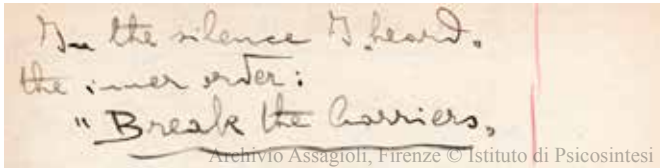 In the silence I heard.
the inner order:
"Break the barriers.
Archivio Assagioli, Firenze © Istituto di Psicosintesi